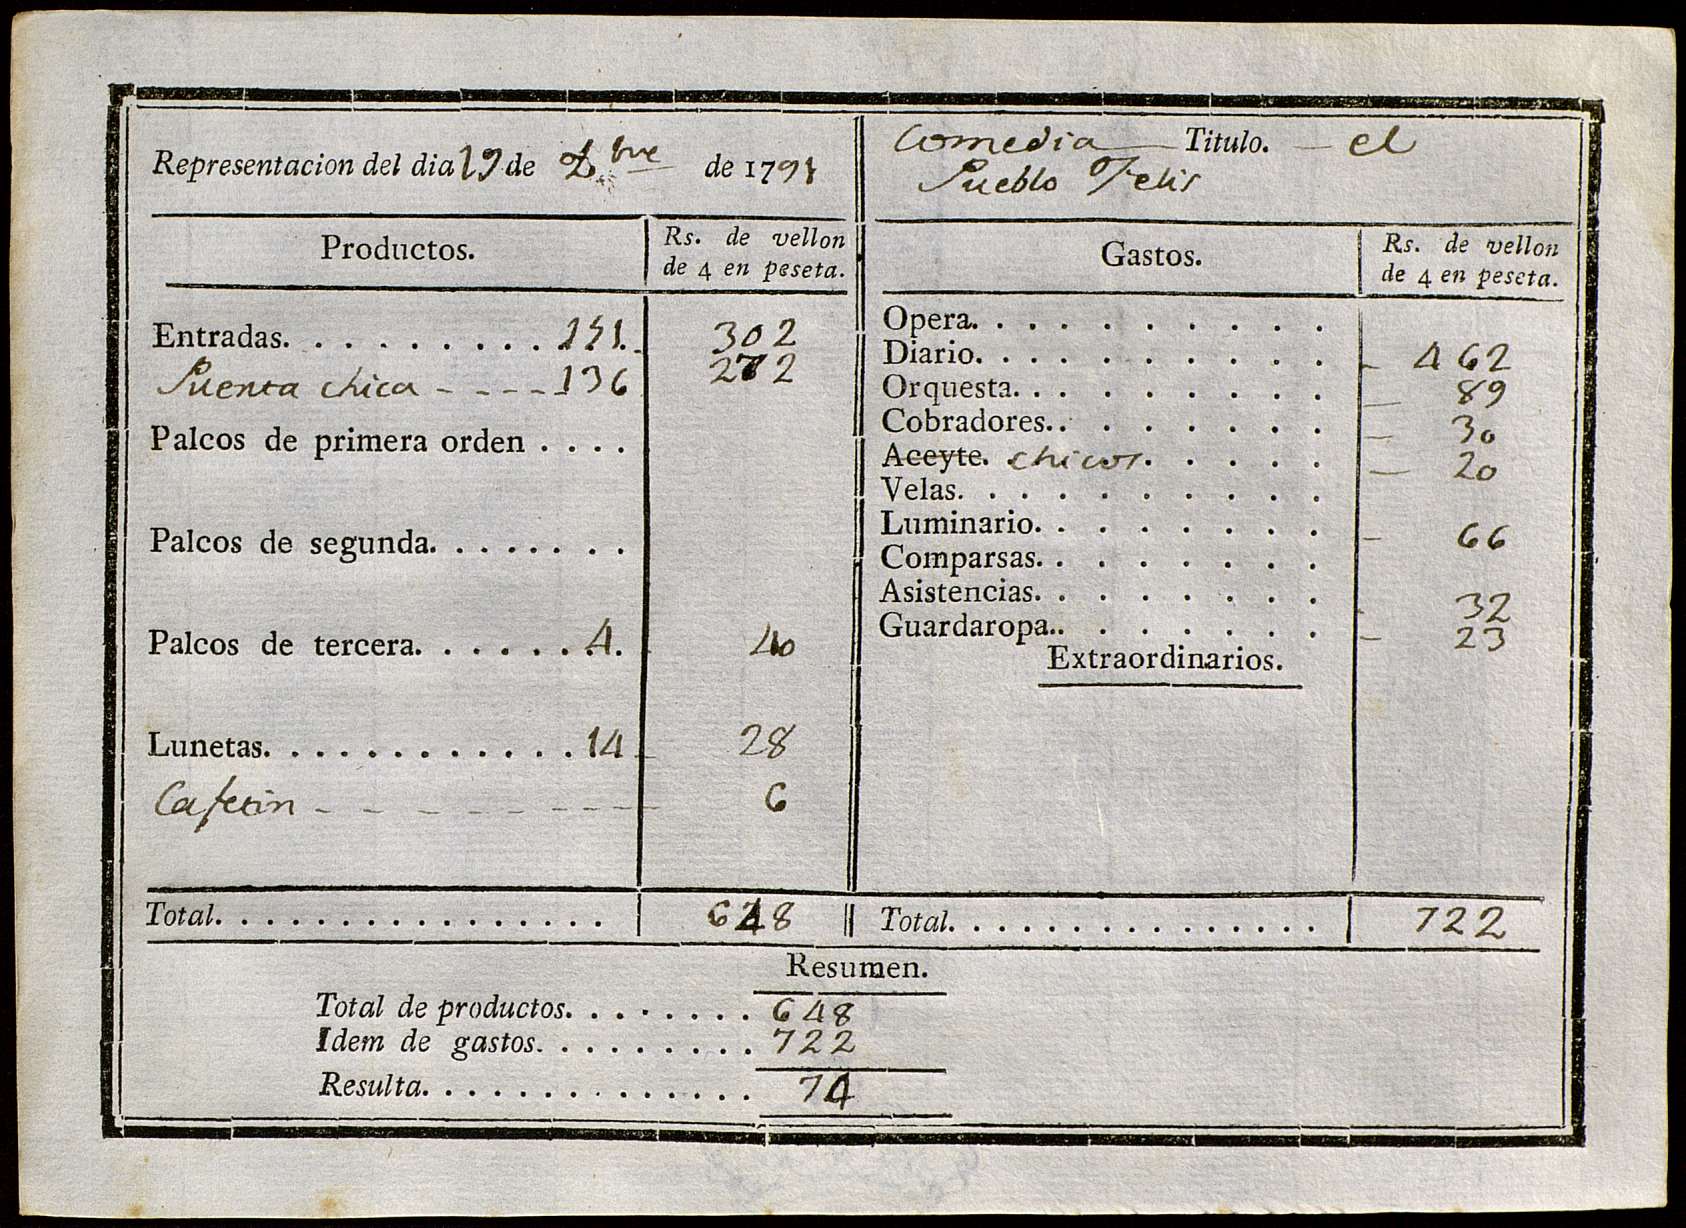 Representacion del dia 19 de Xbre de 1791
Comedia Titulo. el
Pueblo Felis
Productos.
Rs. de vellon
de 4 en peseta.
Entradas. 151. 302
Puerta chica 136 272
Palcos de primera orden
Palcos de segunda.
Palcos de tercera. 4. 40
Lunetas. 14 28
Cafetin 6
Total. 648
Gastos.
Rs. de vellon
de 4 en peseta.
Opera.
Diario. 462
Orquesta. 89
Cobradores. 30
Aceyte. chicos. 20
Velas.
Luminario. 66
Comparsas.
Asistencias. 32
Guardaropa. 23
Extraordinarios.
Total. 722
Resumen.
Total de productos. 648
Idem de gastos. 722
Resulta. 74